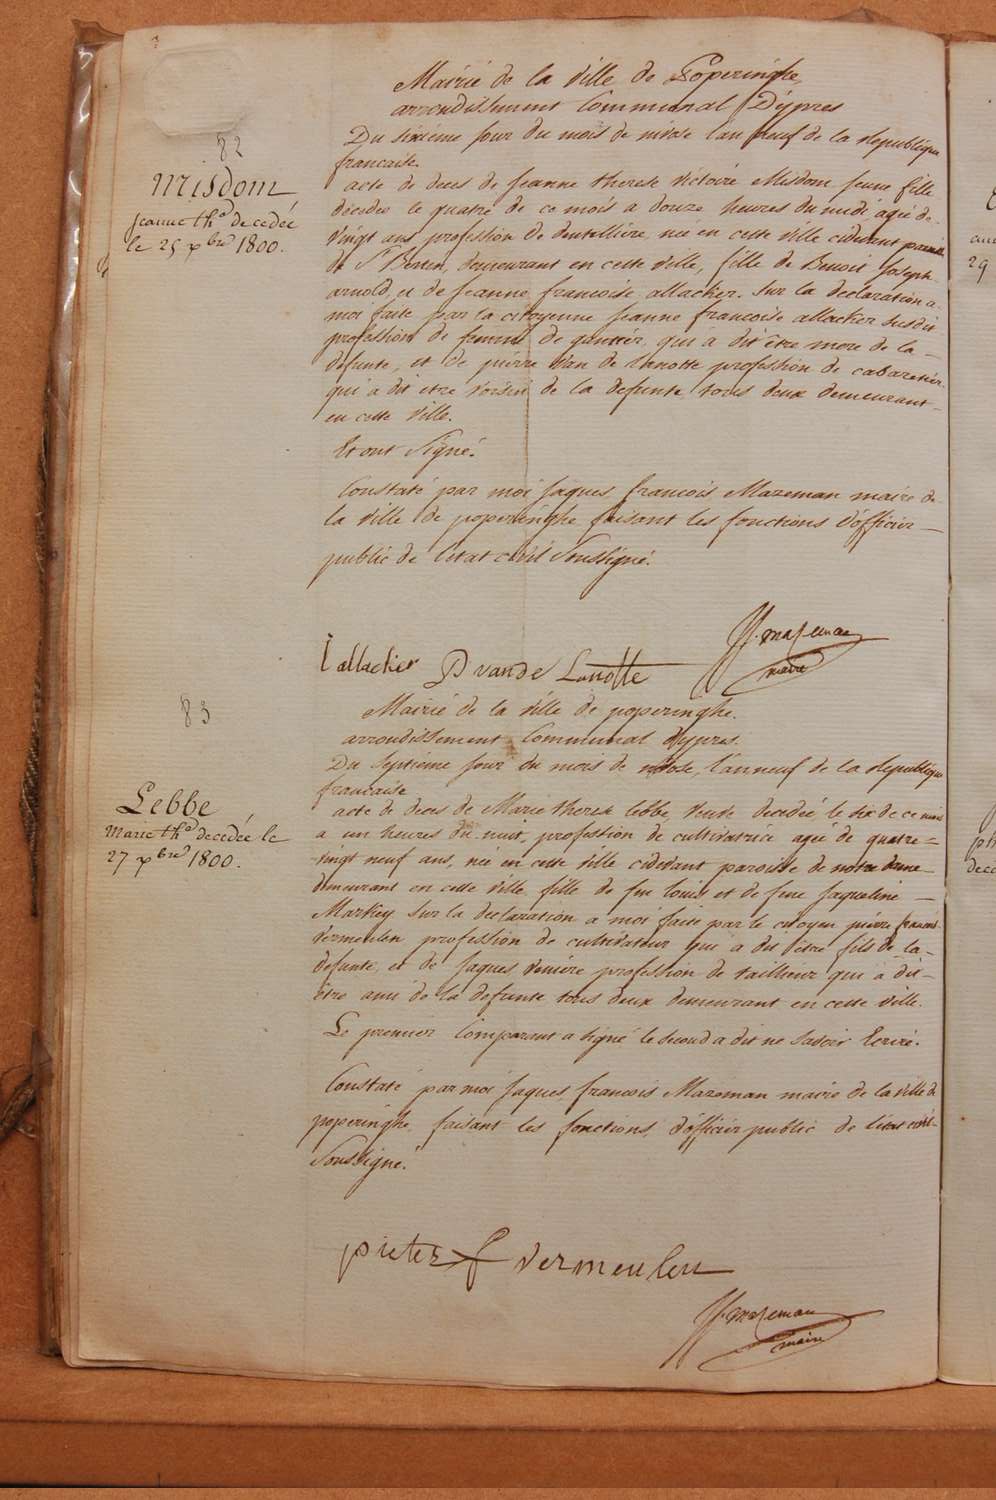 82
Misdom
Jeanne th.e decedée
le 25 xbre 1800.
Mairié de la ville de Poperinghe
arrondissement Communal D'ypres
Du sixieme jour du mois de nivose l'an neuf de la Republique
francaise.
acte de deces de Jeanne therese victoire Misdom jeune fille
decedée le quatre de ce mois a douze heures du midi, agée de
vingt ans profession de dentelliere née en cette ville cidevant paroisse
de St Bertin, demeurant en cette ville, fille de Benoit Joseph
arnold, et de Jeanne francoise allacker. Sur la declaration a
moi faite par la citoyenne Jeanne francoise allacker susdit
profession de femme de gantier, qui a dit être mere de la
defunte, et de pierre Van de Lanotte profession de cabaretier
qui a dit etre voisin de la defunte, tous deux demeurant
en cette ville.
Et ont Signé.
Constaté par moi Jaques francois Mazeman maire de
la ville de poperinghe faisant les fonctions d'officier
public de l'etat civil Soussigné.
J.f. mazeman
maire
I allacker P vande Lanotte
83
Lebbe
Marie th.e decedée le
27 xbre 1800.
Mairié de la ville de poperinghe.
arrondissement Communal d'ypres.
Du Septieme jour du mois de nivose, l'an neuf de la Republique
francaise
acte de deces de Marie therese lebbe, veuve decedée le six de ce mois
a un heures du nuit, profession de cultivatrice agée de quatre=
=vingt neuf ans, née en cette ville cidevant paroisse de notre dame
demeurant en cette ville fille de feu louis et de feue Jaqueline
Markey Sur la declaration a moi faite par le citoyen pierre francois
vermeulen profession de cultivateur qui a dit être fils de la
defunte, et de Jaques Veniere profession de tailleur qui a dit
être ami de la defunte tous deux demeurant en cette ville.
Le premier Comparant a signé le second a dit ne savoir Ecrire.
Constaté par moi Jaques francois Mazeman maire de la ville de
poperinghe faisant les fonctions d'officier public de l'etat civil
Soussigné.
pieter f vermeulen
J.f. mazeman
maire
29